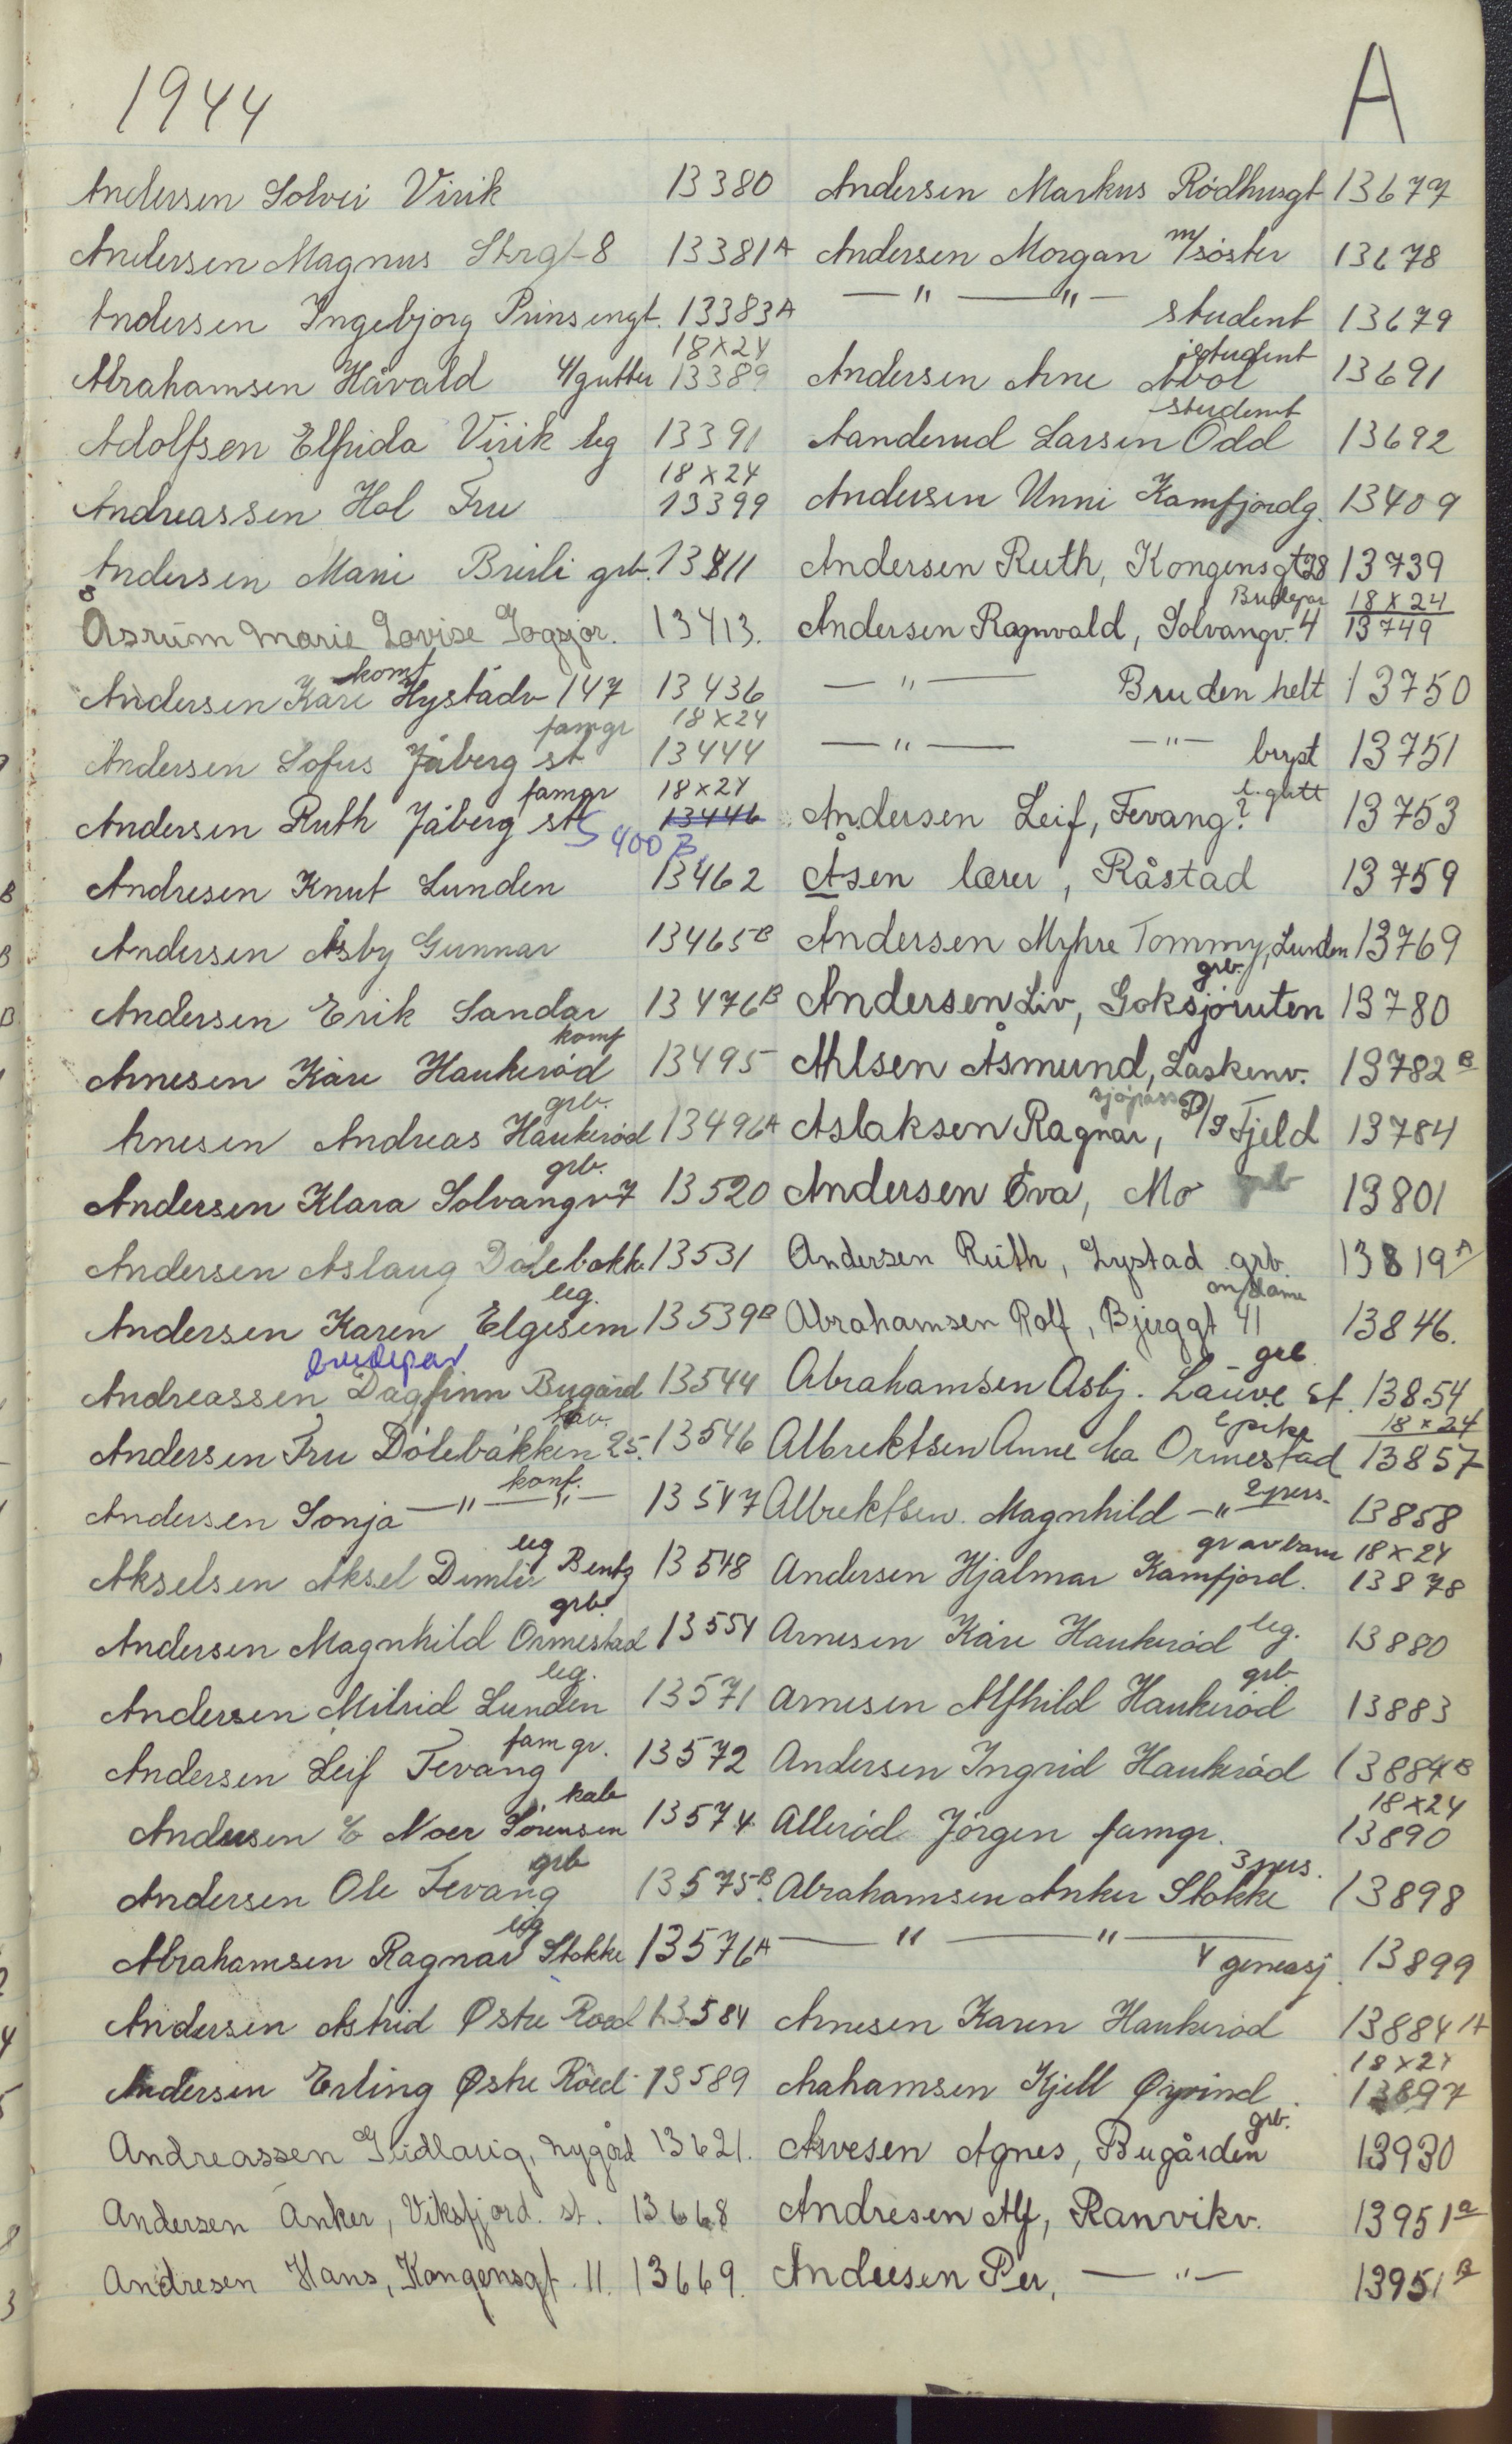 1944
A
Andersen Solvei Virik 13380
Andersen Magnus Strgt 8 13381A
Andersen Ingebjørg Prinsengt. 13383A
18x24
Abrahamsen Håvald 4/gutter 13389
Adolfsen Elfrida Virik leg 13391
18x24
Andreassen Hol Fru 13399
Andersen Marie Breili grb. 13811
Åsrum Marie Lovise Gogsjør. 13413.
komf
Andersen Kåre Hystadv 147 13436
famgr 18x24
Andersen Sofus Jåberg st 13444
famgr 18x24
Andersen Ruth Jåberg st 13446
S 400 B
Andresen Knut Lunden 13462
Andersen Åsby Gunnar 13465B
Andersen Erik Sandar 13476B
komf
Arnesen Kåre Haukerød 13495
grb.
Arnesen Andreas Haukerød 13496A
grb.
Andersen Klara Solvangv 7 13520
Andersen Aslaug Dølebakk. 13531
leg.
Andersen Karen Elgesem 13539B
brudepar
Andreassen Dagfinn Bugård 13544
kav.
Andersen Fru Dølebakken 25. 13546
konf.
Andersen Sonja —"— —"— 13547
leg
Akselsen Aksel Dimler Bentz 13548
grb.
Andersen Magnhild Ormestad 13554
leg.
Andersen Milrid Lunden 13571
fam gr.
Andersen Leif Fevang 13572
kab
Andersen % Noer Sørensen 13574
grb
Andersen Ole Fevang 13575B.
leg
Abrahamsen Ragnar Stokke 13576A
Andersen Astrid Østre Roed 13584
Andersen Erling Østre Röed 13589
Andreassen Gudlaug, Nygård 13621.
Andersen Anker, Viksfjord. st. 13668
Andresen Hans, Kongensgt. 11. 13669.
Andersen Markus Rådhusgt 13677
Andersen Morgan m/søster 13678
—"— —"— student 13679
student
Andersen Arne Åbol 13691
student
Aanderud Larsen Odd 13692
Andersen Unni Kamfjordg. 13409
Andersen Ruth, Kongensgt 28 13739
Brudepar 18x24
Andersen Ragnvald, Solvangv. 4 13749
—"— Bruden helt 13750
—"— —"— bryst 13751
l. gutt
Andersen Leif, Fevang? 13753
Åsen lærer, Råstad 13759
Andersen Myhre Tommy, Lunden 13769
grb.
Andersen Liv, Goksjøruten 13780
Ahlsen Åsmund, Laskenv. 13782B
sjøpass
Aslaksen Ragnar, D/S Fjeld 13784
Andersen Eva, Mo grb 13801
Andersen Ruth, Lystad grb. 13819A
om/dame
Abrahamsen Rolf, Bjerggt 41 13846.
grb
Abrahamsen Asbj. Lauve st. 13854
l pike 18x24
Albrektsen Anne Ma Ormestad 13857
2 pers.
Albrektsen. Magnhild —"— 13858
gr av barn 18x24
Andersen Hjalmar Kamfjord. 13878
Arnesen Kåre Haukerød leg. 13880
grb
Arnesen Alfhild Haukerød 13883
Andersen Ingrid Haukerød 13884B
18x24
Allerød Jørgen famgr. 13890
3 pers.
Abrahamsen Anker Stokke 13898
—"— —"— 4 genera­sj. 13899
Arnesen Karen Haukerød 13884A
18x24
Arahamsen Kjell Øyvind. 13897
grb.
Arvesen Agnes, Bugården 13930
Andresen Alf, Ranvikv. 13951a
Andresen Per, —"— 13951B